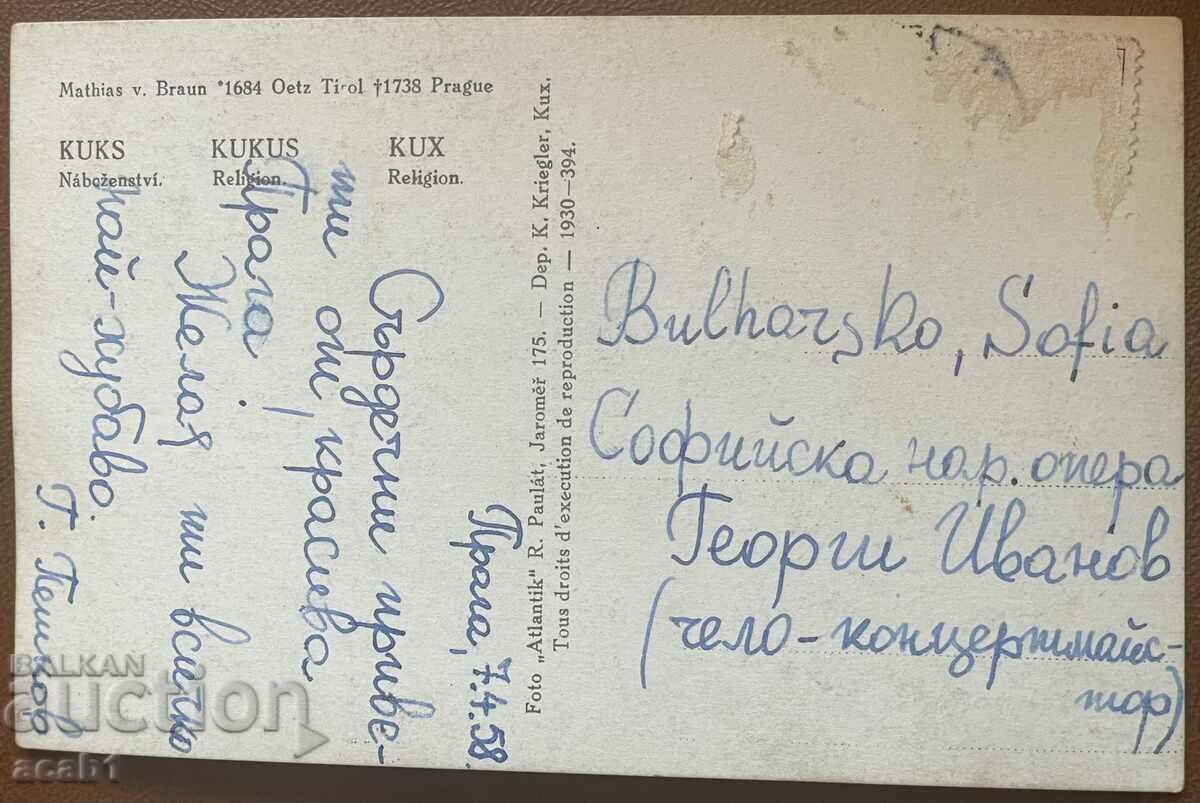 Mathias v. Braun *1684 Oetz Tirol †1738 Prague
KUKS KUKUS KUX
Náboženství. Religion. Religion.
Прага, 7.4.58.
Сърдечни приве-
ти от красива
Прага!
Желая ти всичко
най-хубаво.
Г. Пешков
Foto „Atlantik" R. Paulát, Jaroměř 175. — Dep. K. Kriegler, Kux.
Tous droits d'execution de reproduction — 1930—394.
Bulharsko, Sofia
Софийска нар. опера
Георги Иванов
(чело-концертмайс-
тор)
BALKAN
auction
acab1